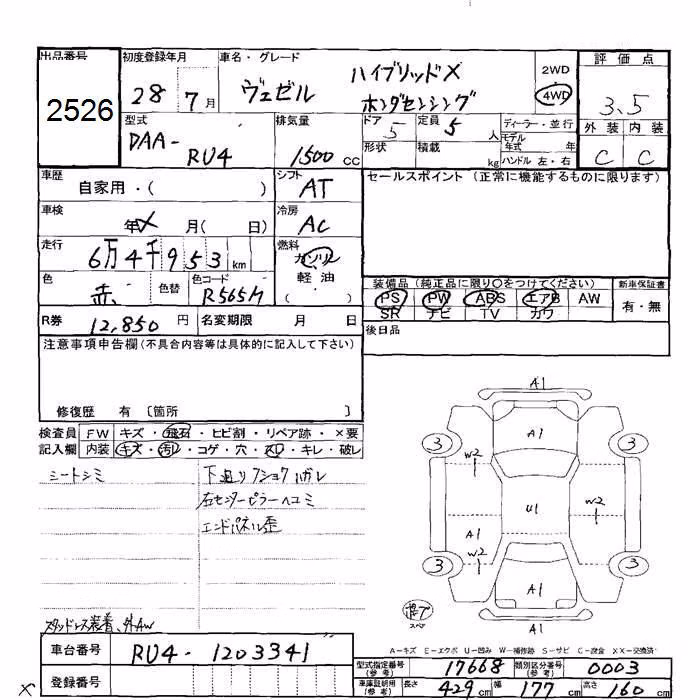 出品番号 初度登録年月 車名・グレード 評価点
2526 28 7月 ヴェゼル ハイブリッドX ホンダセンシング 2WD 4WD 3.5
型式 排気量 ドア 5 定員 5 人 ディーラー・並行 外装 内装
DAA- RU4 1500 cc 形状 積載 kg モデル年式 年 C C
ハンドル 左・右
車歴 自家用・( ) シフト AT セールスポイント(正常に機能するものに限ります)
車検 年 月( 日) 冷房 AC
走行 6万4千953km 燃料 ガソリン 軽油 ( )
色 赤 色替 色コード R565M 装備品(純正品に限り○をつけてください) 新車保証書
PS PW ABS エアB AW 有・無
SR ナビ TV カワ
R券 12,850円 名変期限 月 日 後日品
注意事項申告欄(不具合内容等は具体的に記入して下さい)
修復歴 有 〔箇所 〕
検査員 FW キズ・飛石・ヒビ割・リペア跡・×要
記入欄 内装 キズ・汚レ・コゲ・穴・スレ・キレ・破レ
シートシミ 下廻り
右センターピラーヘコミ
エンドパネル歪
スタッドレス装着、外AW
A1
A1
3 3
W2
W2
U1
A1
W2
3 3
A1
A1
スペア
A-キズ E-エクボ U-凹み W-補修跡 S-サビ C-腐食 XX-交換済
車台番号 RU4-1203341 型式指定番号(参考) 17668 類別区分番号(参考) 0003
登録番号 車庫証明用(参考) 長さ 429cm 幅 177cm 高さ 160cm
X